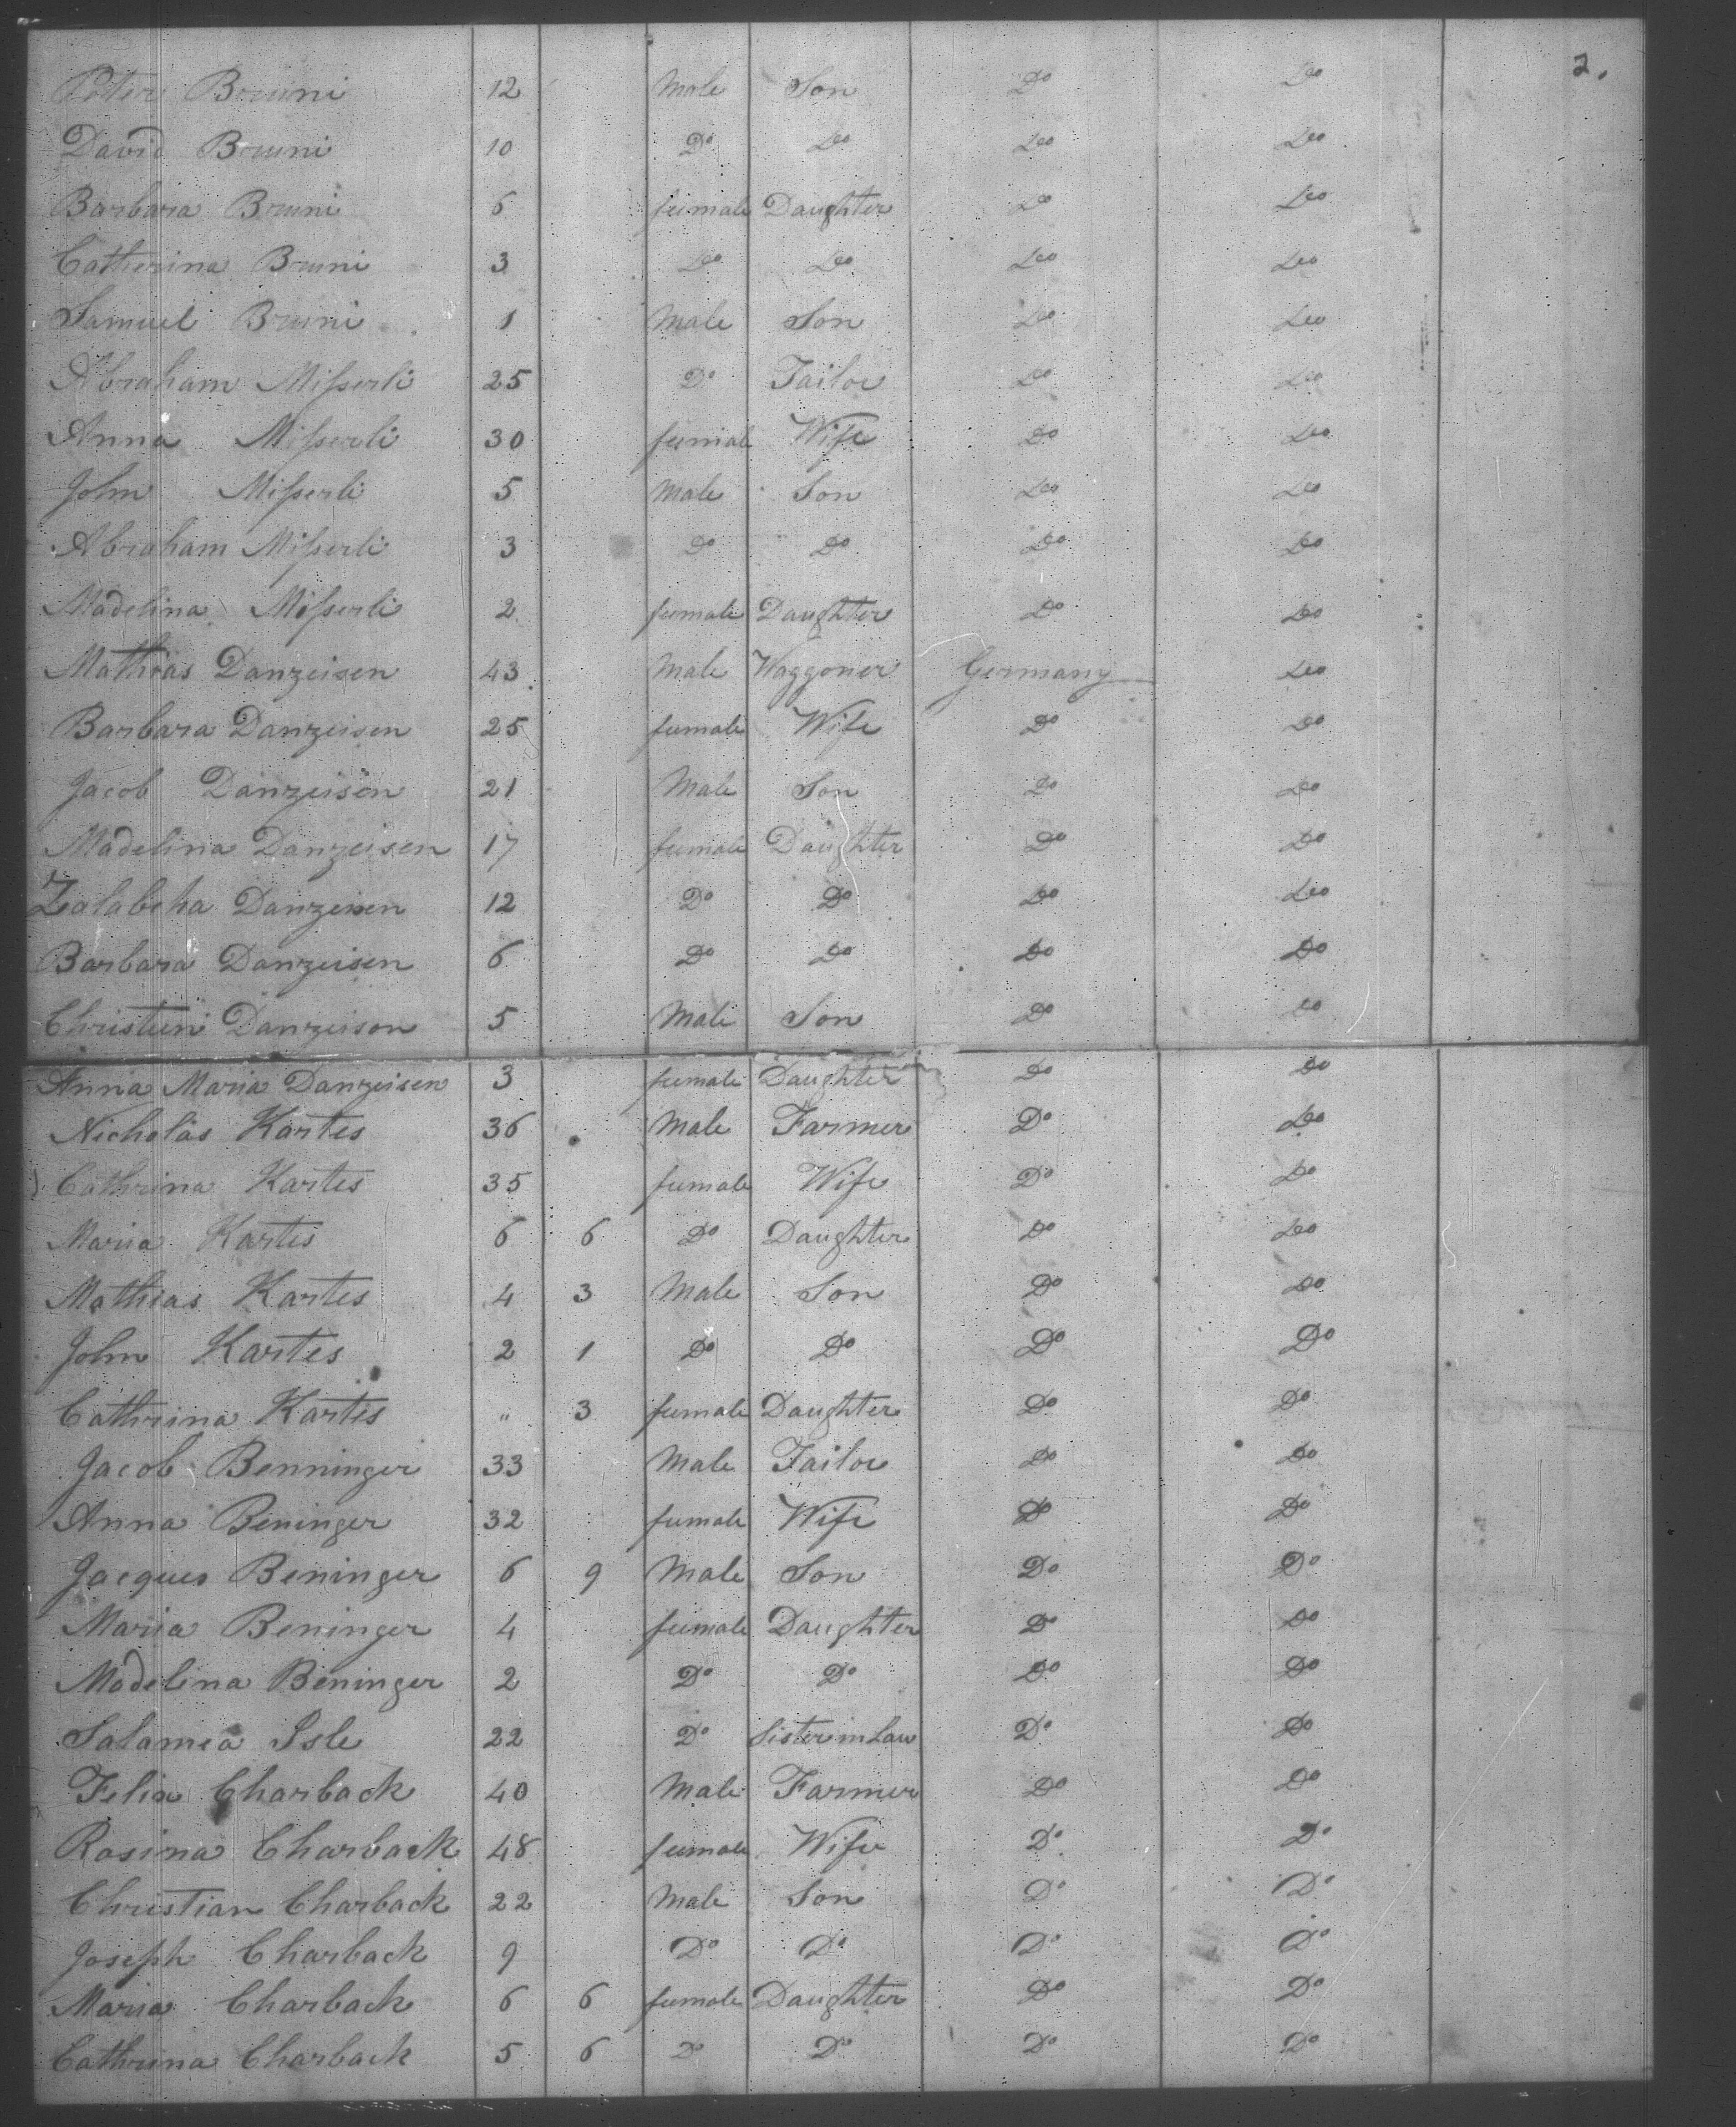 2.
Peter Bruni 12 Male Son Do Do
David Bruni 10 Do Do Do Do
Barbara Bruni 6 female Daughter Do Do
Catherina Bruni 3 Do Do Do Do
Samuel Bruni 1 Male Son Do Do
Abraham Misserli 25 Do Tailor Do Do
Anna Misserli 30 female Wife Do Do
John Misserli 5 Male Son Do Do
Abraham Misserli 3 Do Do Do Do
Madelina Misserli 2 female Daughter Do Do
Mathias Danzeisen 43 Male Waggoner Germany Do
Barbara Danzeisen 25 female Wife Do Do
Jacob Danzeisen 21 Male Son Do Do
Madelina Danzeisen 17 female Daughter Do Do
Zalabeha Danzeisen 12 Do Do Do Do
Barbara Danzeisen 6 Do Do Do Do
Christien Danzeison 5 Male Son Do Do
Anna Maria Danzeisen 3 female Daughter Do Do
Nicholas Kartes 36 Male Farmer Do Do
Cathrina Kartes 35 female Wife Do Do
Maria Kartes 6 6 Do Daughter Do Do
Mathias Kartes 4 3 Male Son Do Do
John Kartes 2 1 Do Do Do Do
Cathrina Kartes " 3 female Daughter Do Do
Jacob Benninger 33 Male Tailor Do Do
Anna Beninger 32 female Wife Do Do
Jacques Beninger 6 9 Male Son Do Do
Maria Beninger 4 female Daughter Do Do
Madelina Beninger 2 Do Do Do Do
Salamea Isle 22 Do Sister in Law Do Do
Felix Charback 40 Male Farmer Do Do
Rosina Charback 48 female Wife Do Do
Christian Charback 22 Male Son Do Do
Joseph Charback 9 Do Do Do Do
Maria Charback 6 6 female Daughter Do Do
Cathrina Charback 5 6 Do Do Do Do